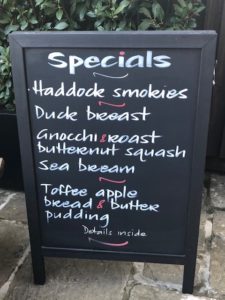 Specials
Haddock smokies
Duck breast
Gnocchi & roast
butternut squash
Sea bream
Toffee apple
bread & butter
pudding
Details inside